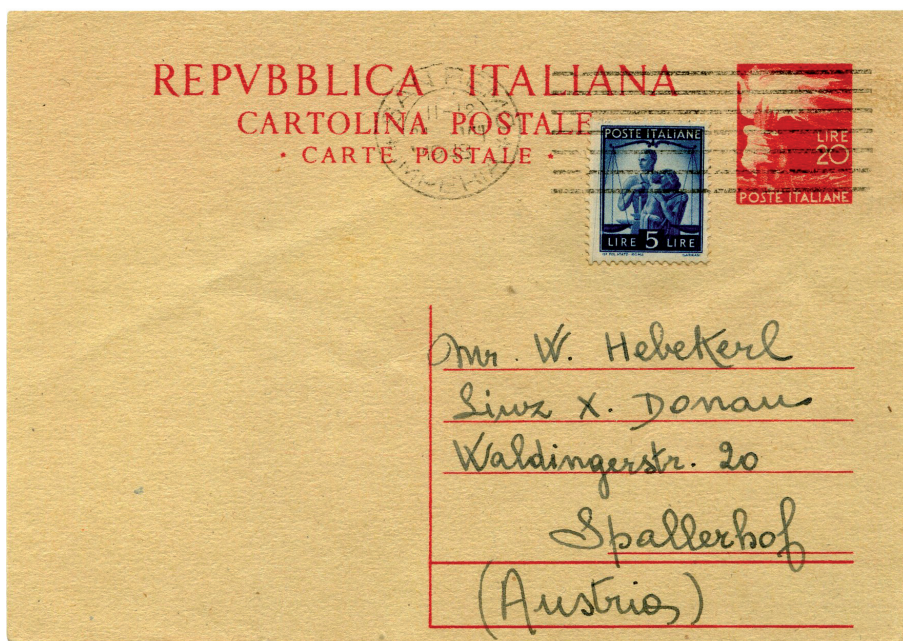 REPVBBLICA ITALIANA
CARTOLINA POSTALE
* CARTE POSTALE *
11-12
LIRE
20
POSTE ITALIANE
POSTE ITALIANE
LIRE 5 LIRE
Mr. W. Hebekerl
Linz X. Donau
Waldingerstr. 20
Spallerhof
(Austria)